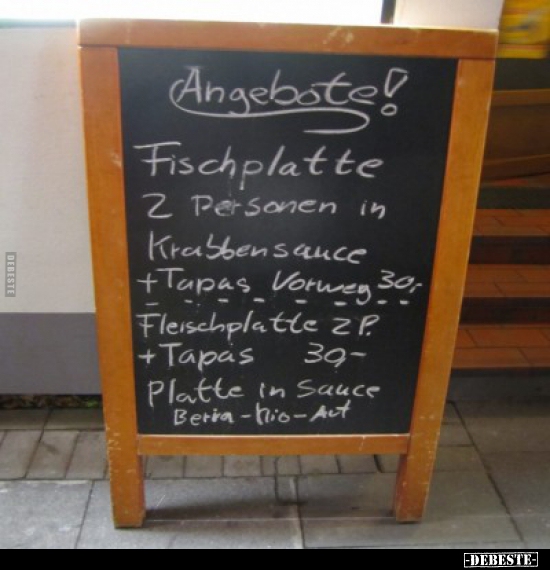 Angebote!
Fischplatte
2 Personen in
Krabbensauce
+Tapas Vorweg 30,-
Fleischplatte 2 P.
+Tapas 30,-
Platte in Sauce
-Mio-Art
DEBESTE
-DEBESTE-